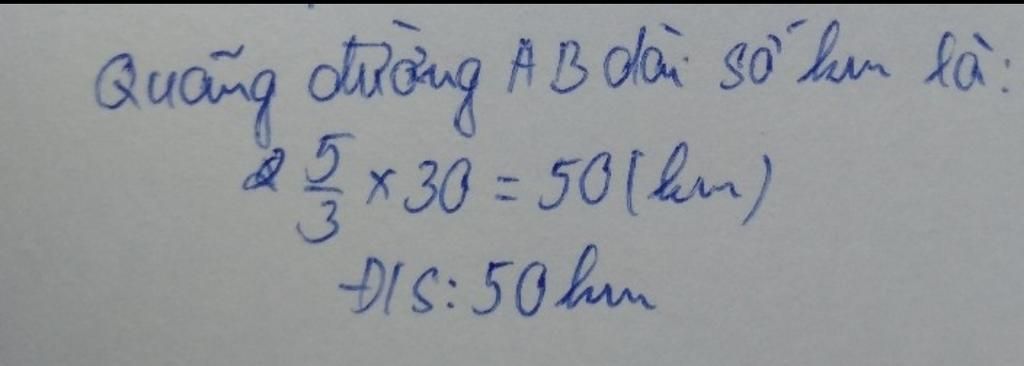 Quãng đường AB dài số km là:
5/3 × 30 = 50 (km)
Đ/S: 50 km